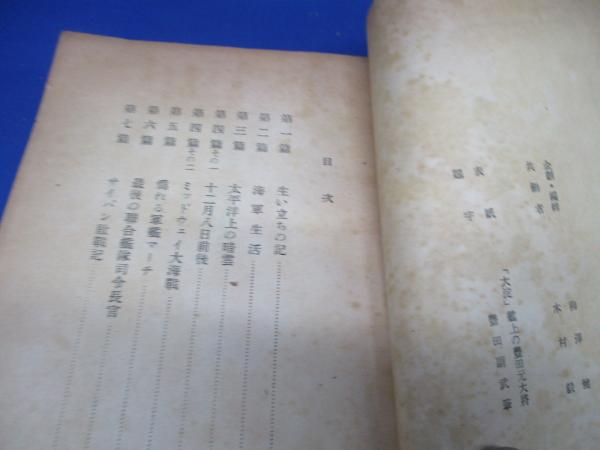 企劃・編輯
執筆者
柳澤健
木村毅
表紙
「大淀」艦上の豊田元大將
題字
豊田副武筆
目次
第一篇 生い立ちの記
第二篇 海軍生活
第三篇 太平洋上の暗雲
第四篇その一 十二月八日前後
第四篇その二 ミッドウェイ大海戰
第五篇 悩れる軍艦マーチ
第六篇 最後の聯合艦隊司令長官
第七篇 サイパン敗戰記